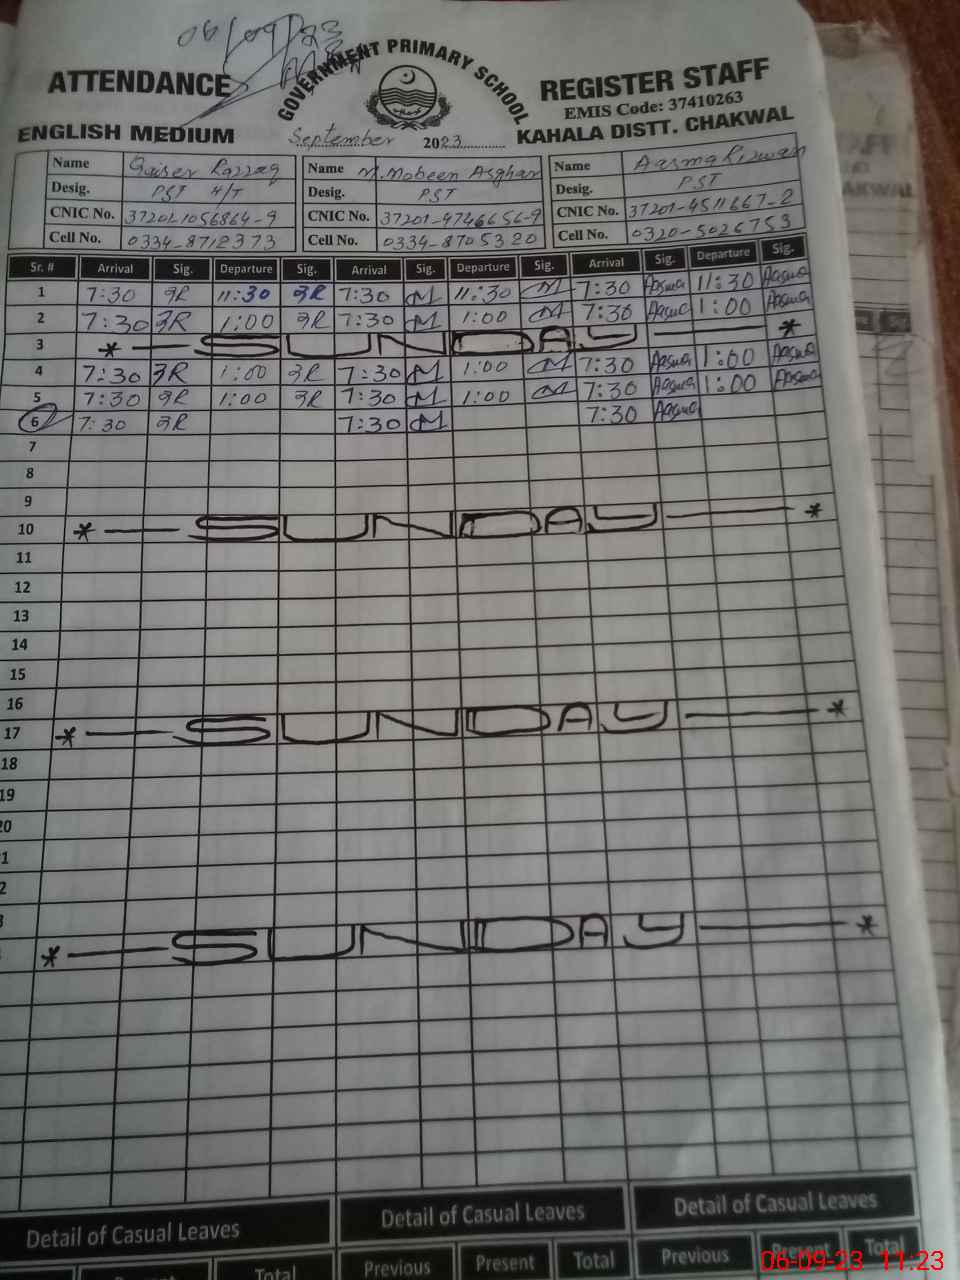 06/09/23
ATTENDANCE GOVERNMENT PRIMARY SCHOOL REGISTER STAFF
EMIS Code: 37410263
ENGLISH MEDIUM September 2023 KAHALA DISTT. CHAKWAL
Name Qaiser Razzaq Name M.Mobeen Asghar Name Aasma Rizwan
Desig. PST H/T Desig. PST Desig. PST
CNIC No. 372011056864-9 CNIC No. 37201-4746656-9 CNIC No. 37201-4511667-2
Cell No. 0334-8712373 Cell No. 0334-8705320 Cell No. 0320-5026753
Sr. # Arrival Sig. Departure Sig. Arrival Sig. Departure Sig. Arrival Sig. Departure Sig.
1 7:30 11:30 7:30 M 11:30 M 7:30 Aasma 11:30 Aasma
2 7:30 1:00 7:30 M 1:00 M 7:30 Aasma 1:00 Aasma
3 * — SUNDAY — *
4 7:30 1:00 7:30 M 1:00 M 7:30 Aasma 1:00 Aasma
5 7:30 1:00 7:30 M 1:00 M 7:30 Aasma 1:00 Aasma
6 7:30 7:30 M 7:30 Aasma
7
8
9
10 * — SUNDAY — *
11
12
13
14
15
16
17 * — SUNDAY — *
18
19
20
1
2
3
* — SUNDAY — *
Detail of Casual Leaves Detail of Casual Leaves Detail of Casual Leaves
Present Total Previous Present Total Previous Present Total
06-09-23 11:23